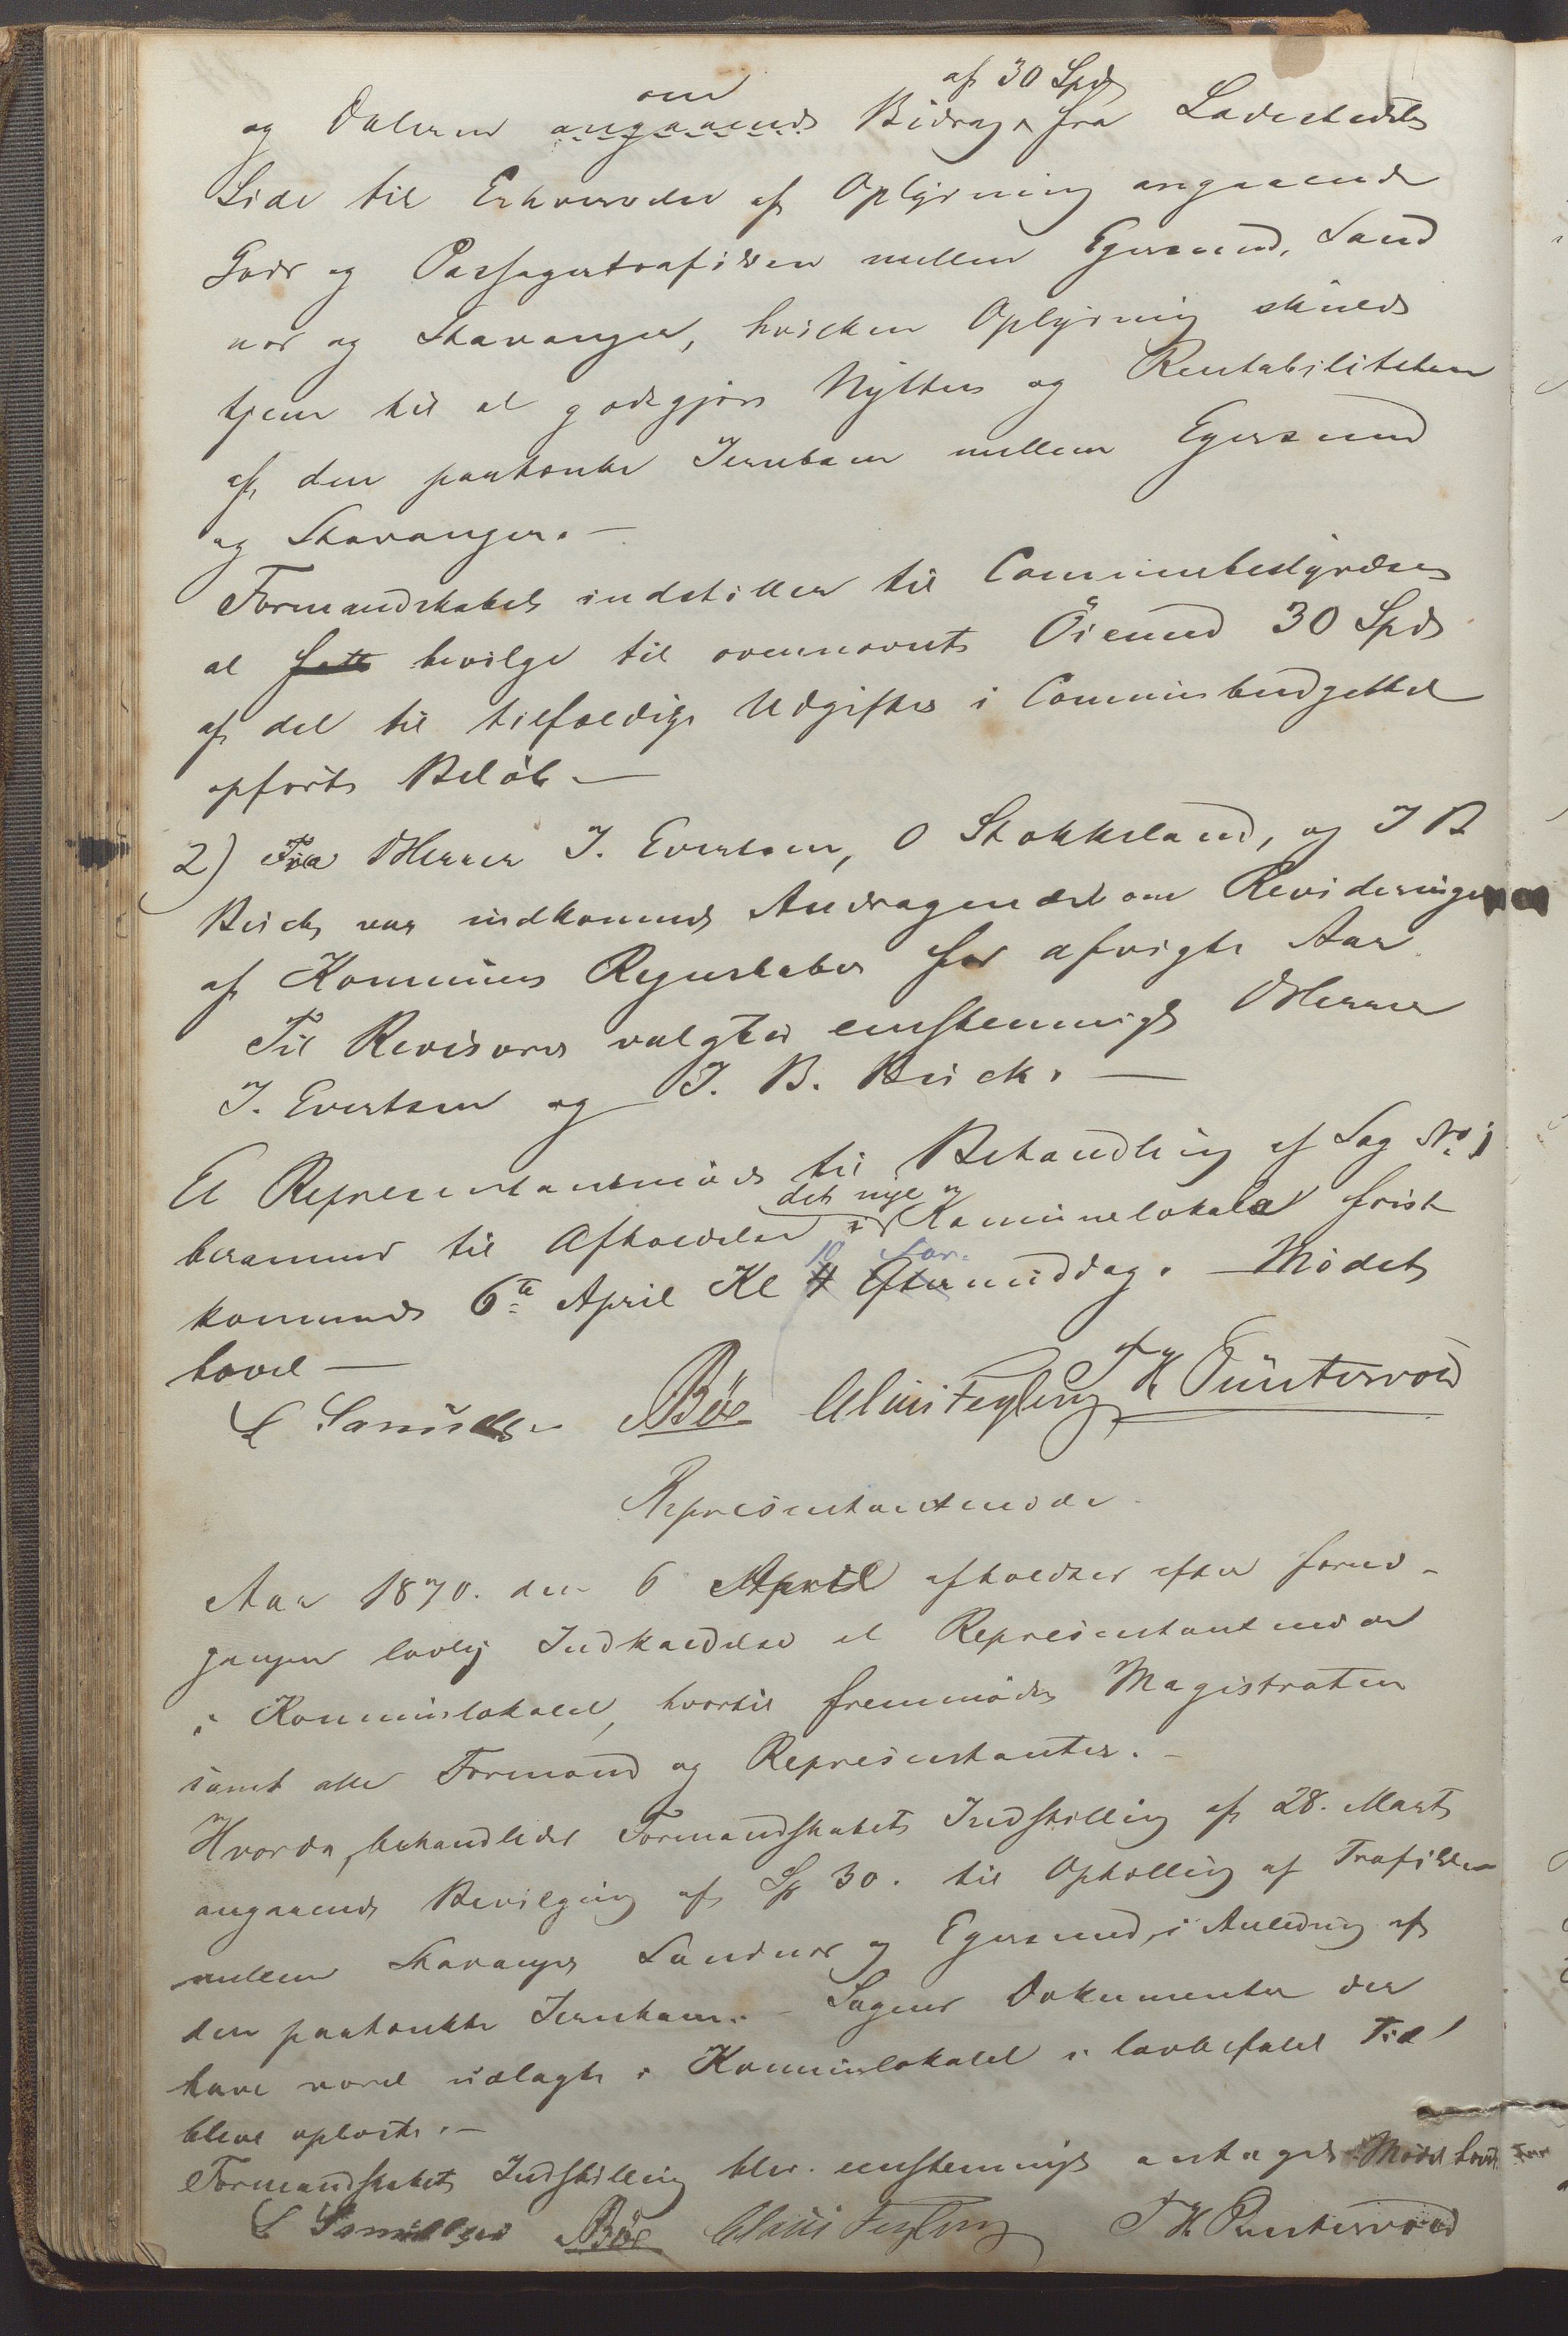 om af 30 Spd
og Dalerne angaaende Bidrag fra Ladestedets
Side til Erhvervelse af Oplysning angaaende
Gods og Passagertrafikken mellem Egersund, Sand
nes og Stavanger, hvilken Oplysning skulde
tjene til at godtgjøre Nytten og Rentabiliteten
af den paatænkte Jernbane mellem Egersund
og Stavanger. —
Formandskabet indstiller til Communebestyrelsen
at bevilge til ovennævnte Øiemed 30 Spd
af det til tilfældige Udgifter i Communebudgettet
opførte Beløb —
2) Fra Herrer J. Evertsen, O Stokkeland, og J B
var indkommet Andragende om Revideringen
af Kommunens Regnskaber for afvigte Aar
Til Revisorer valgtes enstemmigt Herrer
J. Evertsen og J. B. —
Et Repræsentantmøde til Behandling af Sag No 1
det nye
berammes til Afholdelse i Kommunelokale først
10 For
kommende 6te April Kl 4 Eftermiddag. — Mødet
hævet —
Bøe Claus Feyling T H Puntervold
Repræsentantmøde
Aar 1870. den 6 April afholdtes efter forud-
gangen lovlig Indkaldelse et Repræsentantmøde
i Kommunelokalet, hvortil fremmødte Magistraten
samt alle Formænd og Repræsentanter. —
Hvorda behandledes Formandskabets Indstilling af 28. Marts
angaaende Bevilgning af Sp 30. til Optælling af Trafikken
mellem Stavanger Sandnes og Egersund, i Anledning af
den paatænkte Jernbane. — Sagens Dokumenter der
have været udlagte i Kommunelokalet i lovbefalet Tid
bleve oplæste. —
Formandskabets Indstilling blev enstemmigt antaget. Mødet hævet.
Bøe Claus Feyling T H Puntervold